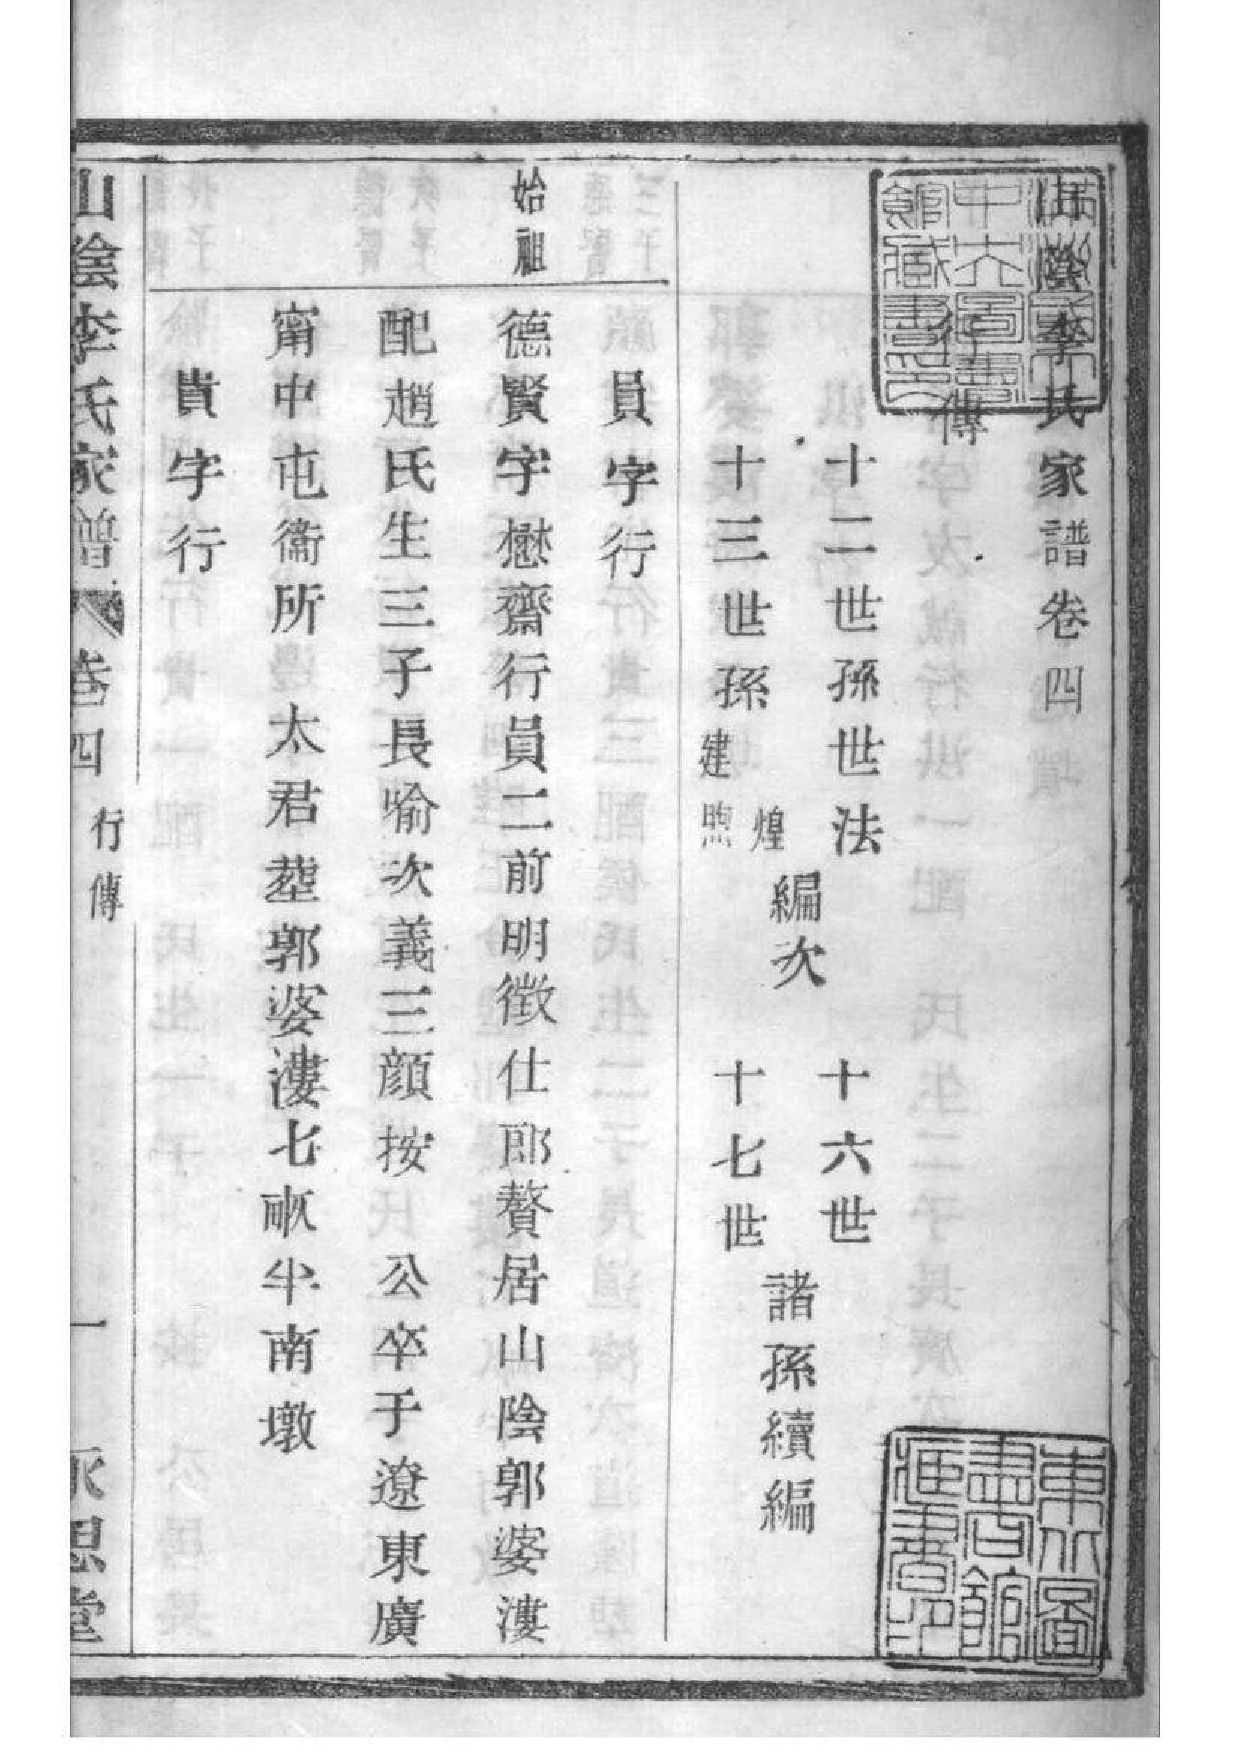 山陰李氏家譜卷四
行傳
十二世孫世法
十三世孫建煌
煦
編次
十六世
十七世
諸孫續編
員字行
始祖
德賢字懋齋行員二前明徵仕郎贅居山陰郭婆漊
配趙氏生三子長喻次義三顏按 公卒于遼東廣
甯中屯衞所太君塟郭婆漊七畝半南墩
貴字行
山陰李氏家譜 卷四 行傳 一 永思堂
東北圖書館藏書印